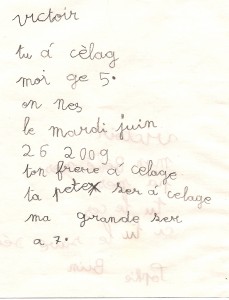 victoir
tu á cèlag
moi ge 5.
on nes
le mardi juin
26 2009
ton frère á cèlage
ta petex ser á celage
ma grande ser
a 7.